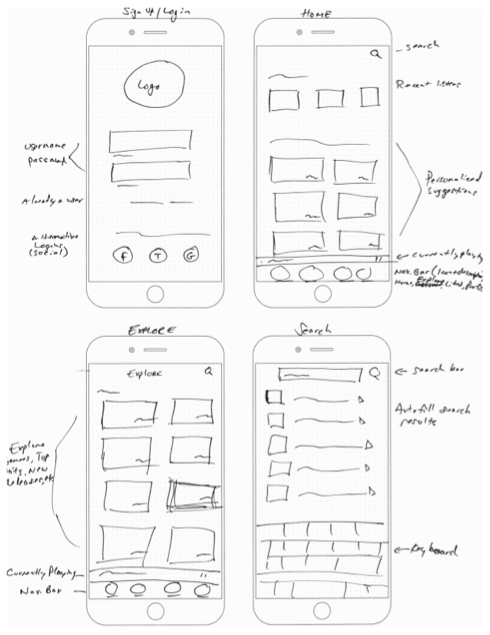 Sign Up/Login
Logo
username
password
Already a user
alternative
Logins
(social)
F T G
HOME
search
Recent listens
Personalized
Suggestions
currently playing
Nav. Bar
Home, Explore
EXPLORE
Explore
Explore
genres, Top
hits, New
Releases, etc
Currently Playing
Nav. Bar
Search
search bar
Autofill search
results
Keyboard